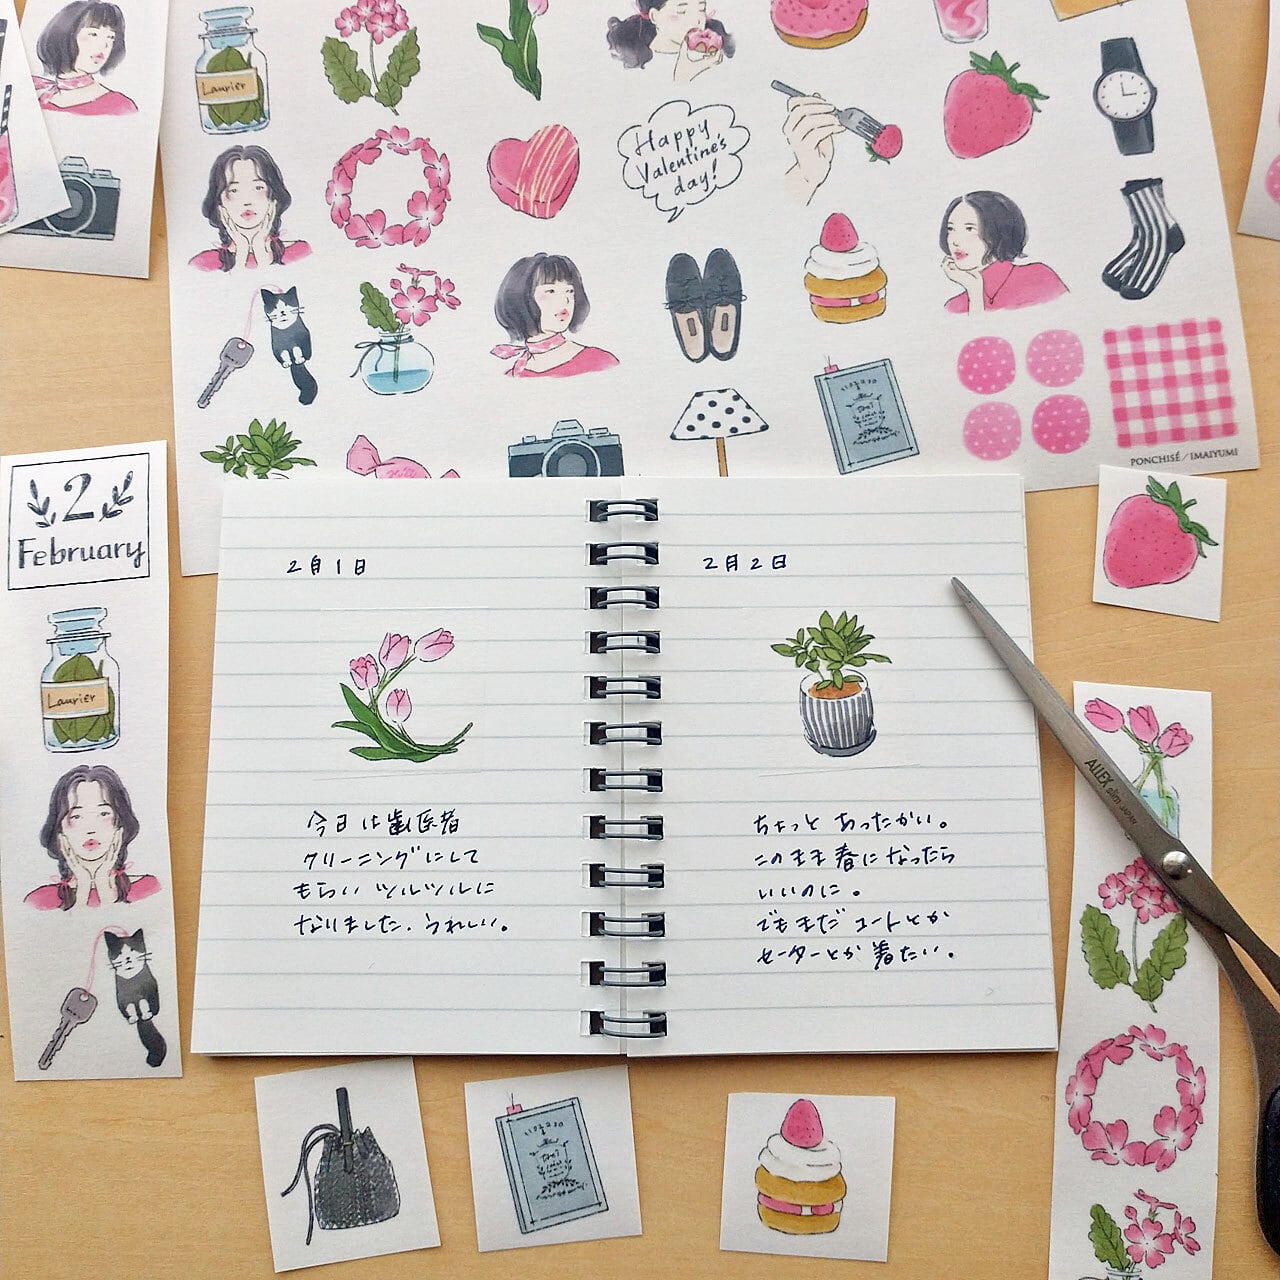 Laurier
Happy
Valentine's
day!
PONCHISÉ / IMAIYUMI
2
February
Laurier
2月1日
今日は歯医者
クリーニングにして
もらい ツルツルに
なりました。うれしい。
2月2日
ちょっと あったかい。
このまま春になったら
いいのに。
でもまだ コートとか
セーターとか 着たい。
ALLEX slim JAPAN